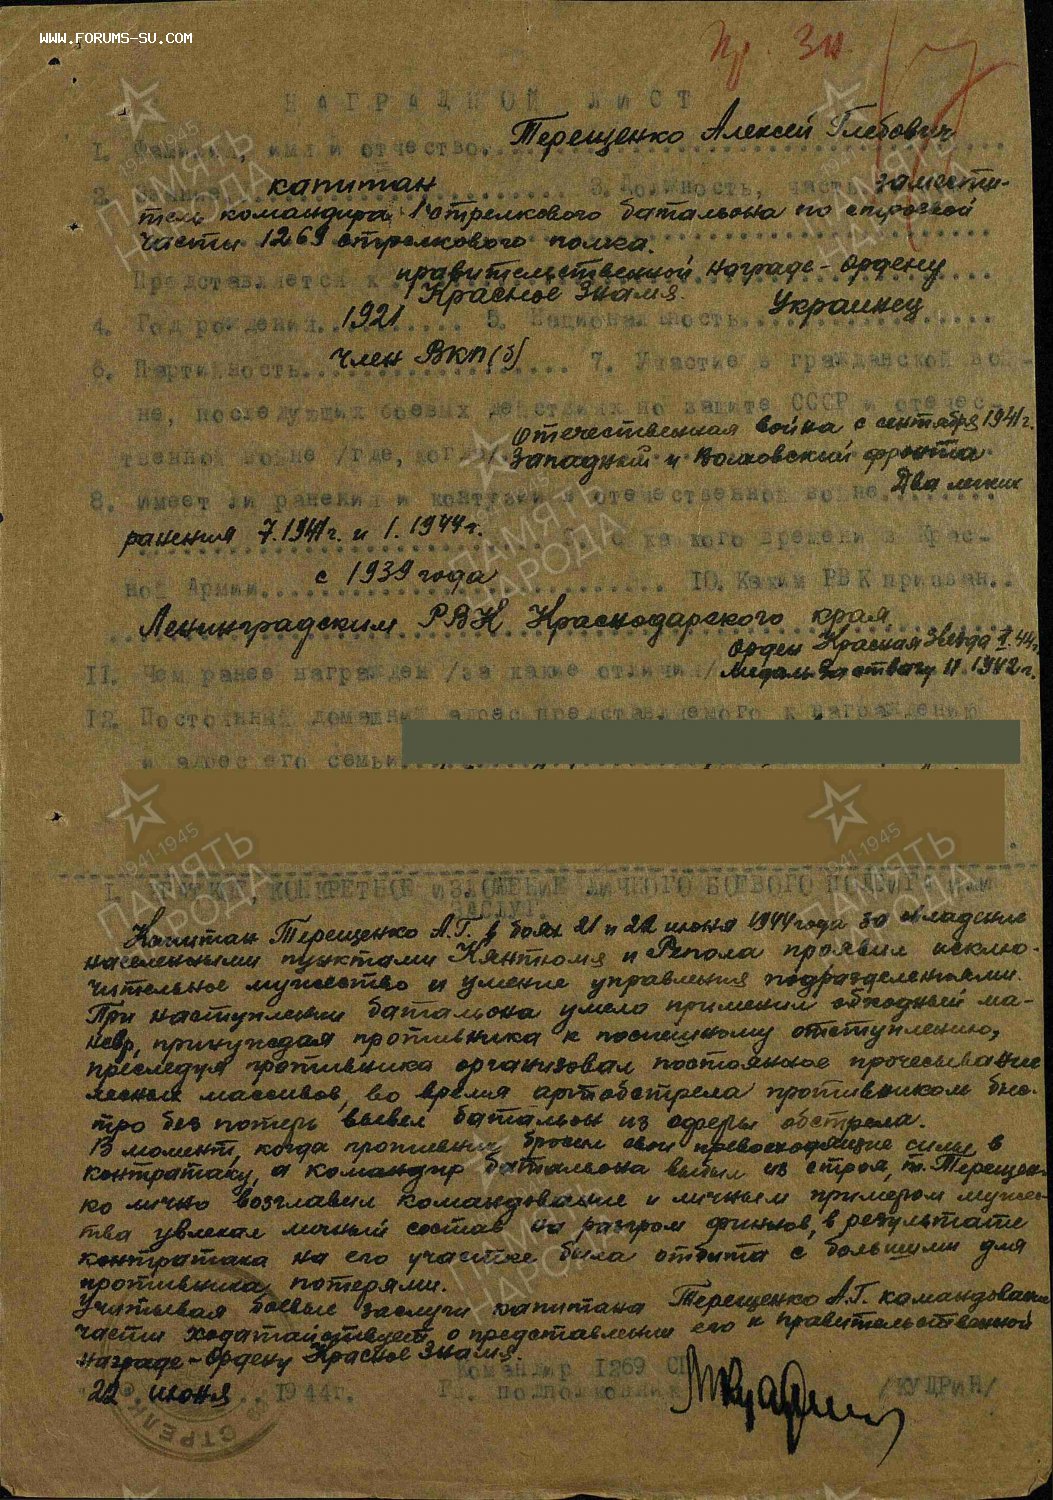 WWW.FORUMS-SU.COM
Пр. 30.
НАГРАДНОЙ ЛИСТ
1. Фамилия, имя и отчество. Терещенко Алексей Глебович
2. Звание капитан 3. Должность, часть замести-
тель командира 1 стрелкового батальона по строевой
части 1269 стрелкового полка.
Представляется к правительственной награде - ордену
Красное Знамя.
4. Год рождения 1921 5. Национальность Украинец
6. Партийность член ВКП(б) 7. Участие в гражданской вой-
не, последующих боевых действиях по защите СССР и отечес-
твенной войне /где, когда/ Отечественная война с сентября 1941 г.
Западный и Волховский фронта
8. Имеет ли ранения и контузии в отечественной войне Два легких
ранения 7.1941 г. и 1.1944 г. 9. С какого времени в Крас-
ной Армии с 1939 года 10. Каким РВК призван
Ленинградским РВК Краснодарского края
11. Чем ранее награжден /за какие отличия/ Орден Красная Звезда 44 г.
Медаль За отвагу 1942 г.
12. Постоянный домашний адрес представляемого к награждению
и адрес его семьи
I. КРАТКОЕ, КОНКРЕТНОЕ ИЗЛОЖЕНИЕ ЛИЧНОГО БОЕВОГО ПОДВИГА ИЛИ
ЗАСЛУГ.
Капитан Терещенко А.Г. в боях 21 и 22 июня 1944 года за владение
населенными пунктами Кянтюмя и Репола проявил исклю-
чительное мужество и умение управления подразделениями.
При наступлении батальона умело применил обходный ма-
невр, принуждая противника к поспешному отступлению,
преследуя противника организовал постоянное прочесывание
лесных массивов, во время артобстрела противником быс-
тро без потерь вывел батальон из сферы обстрела.
В момент, когда противник бросил свои превосходящие силы в
контратаку, а командир батальона выбыл из строя, т. Терещен-
ко лично возглавил командование и личным примером мужес-
тва увлекал личный состав на разгром финнов, в результате
контратака на его участке была отбита с большими для
противника потерями.
Учитывая боевые заслуги капитана Терещенко А.Г. командование
части ходатайствует о представлении его к правительственной
награде - Ордену Красное Знамя.
Командир 1269 СП
22 июня 1944г. Гв. подполковник /КУДРИН/
СТРЕЛК
ПАМЯТЬ НАРОДА
1941-1945